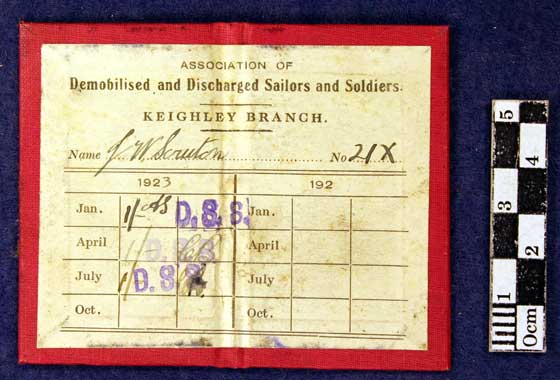 ASSOCIATION OF
Demobilised and Discharged Sailors and Soldiers.
KEIGHLEY BRANCH.
Name J. W. Scruton No 21X
1923 192
Jan. 1/- D.S.S. Jan.
April 1/ D.S.S April
July 1/ D.S.S July
Oct. Oct.
5
4
3
2
1
0cm